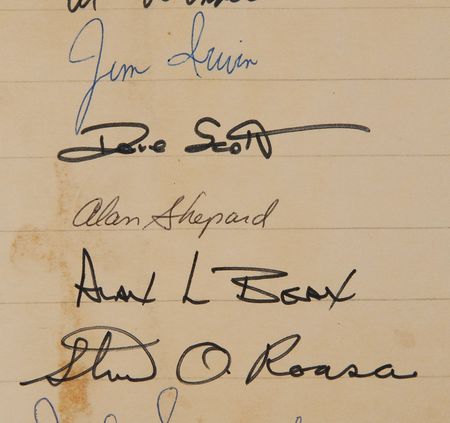 Jim Irwin
Dave Scott
Alan Shepard
Alan L Bean
Stuart A. Roosa